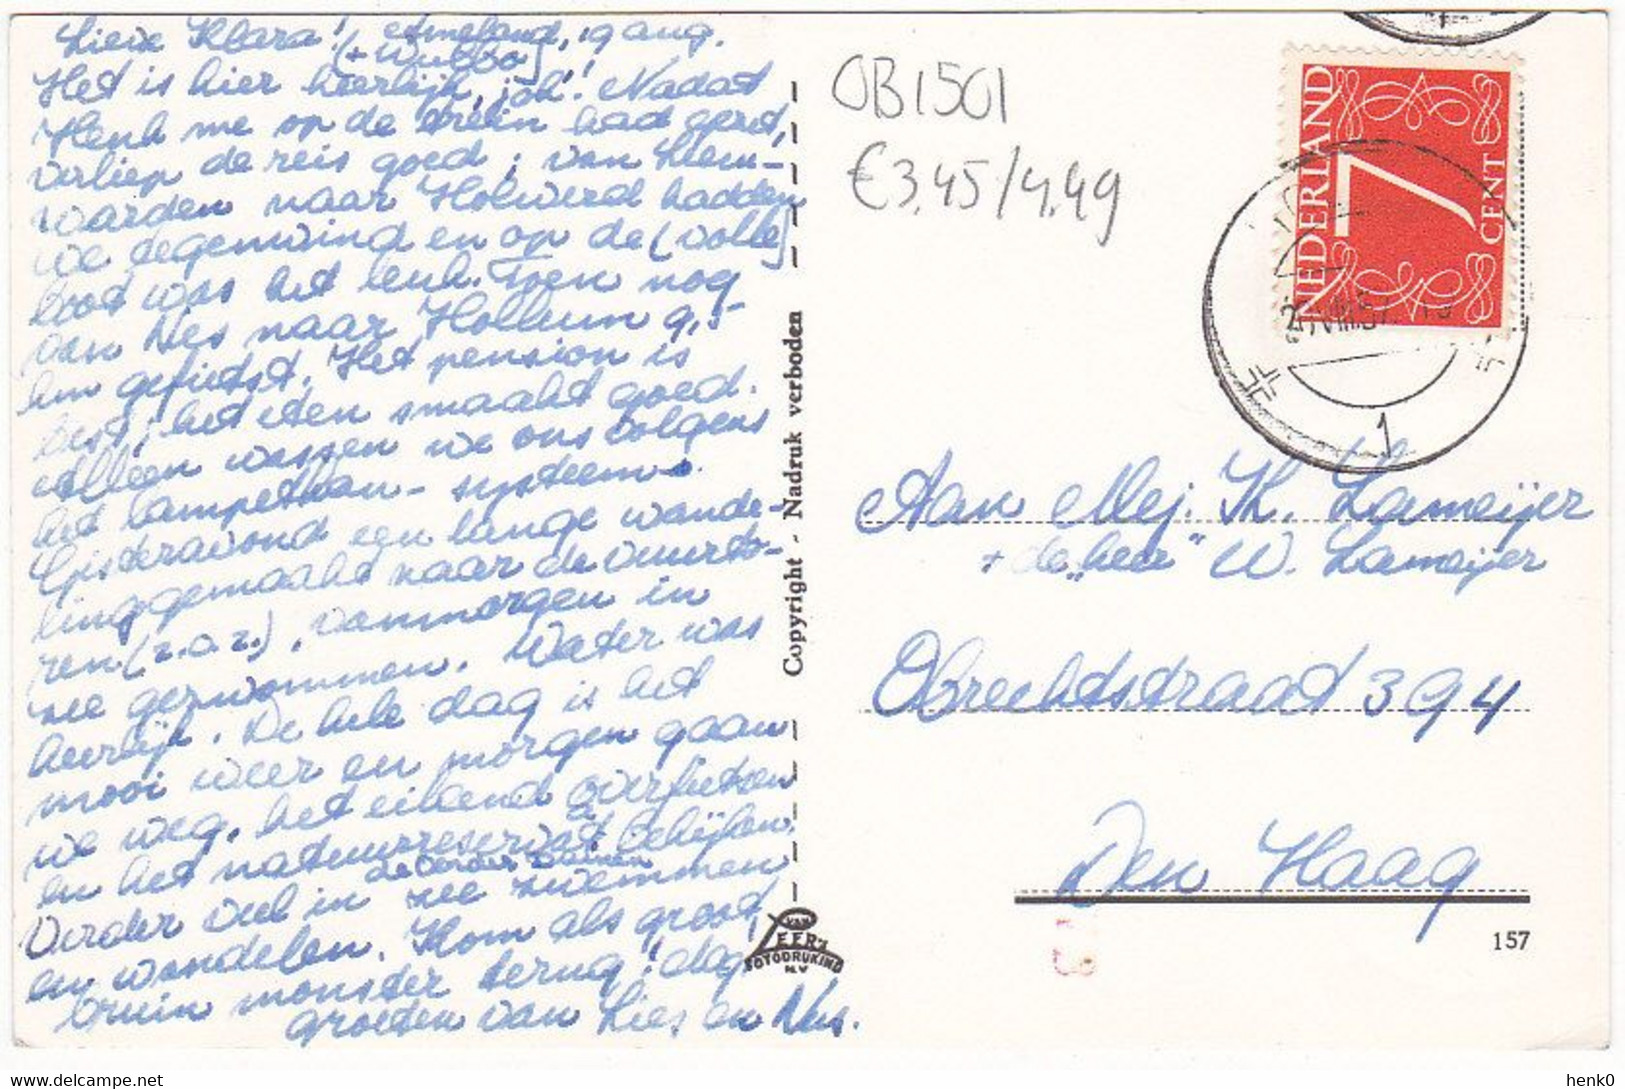 Lieve Klara! Ameland, 19 aug.
(+ Wubbo)
Het is hier heerlijk, joh! Nadat
Henk me op de trein had gezet,
verliep de reis goed; van Leeu-
warden naar Holwerd hadden
we tegenwind en op de (volle)
boot was het leuk. Toen nog
van Nes naar Hollum 9,5
km gefietst. Het pension is
best; het eten smaakt goed.
Alleen wassen we ons volgens
het lampetkan-systeem.
Gisteravond een lange wande-
ling gemaakt naar de vuurto-
ren (z.o.z.), vanmorgen in
zee gezwommen. Water was
heerlijk. De hele dag is het
mooi weer en morgen gaan
we weg, het eiland overfietsen
en het natuurreservaat bekijken.
Verder veel in zee zwemmen
en wandelen. Kom als groot,
bruin monster terug! dag
groeten van Lies en
Copyright - Nadruk verboden
VAN
LEER'S
FOTODRUKIND
N.V.
OB1501
€3,45/4,49
NEDERLAND
7
CENT
VIII.57
1
Aan Mej. Th. Lameijer
+ de „heer" W. Lameijer
Obrechtstraat 394
Den Haag
157
henk0